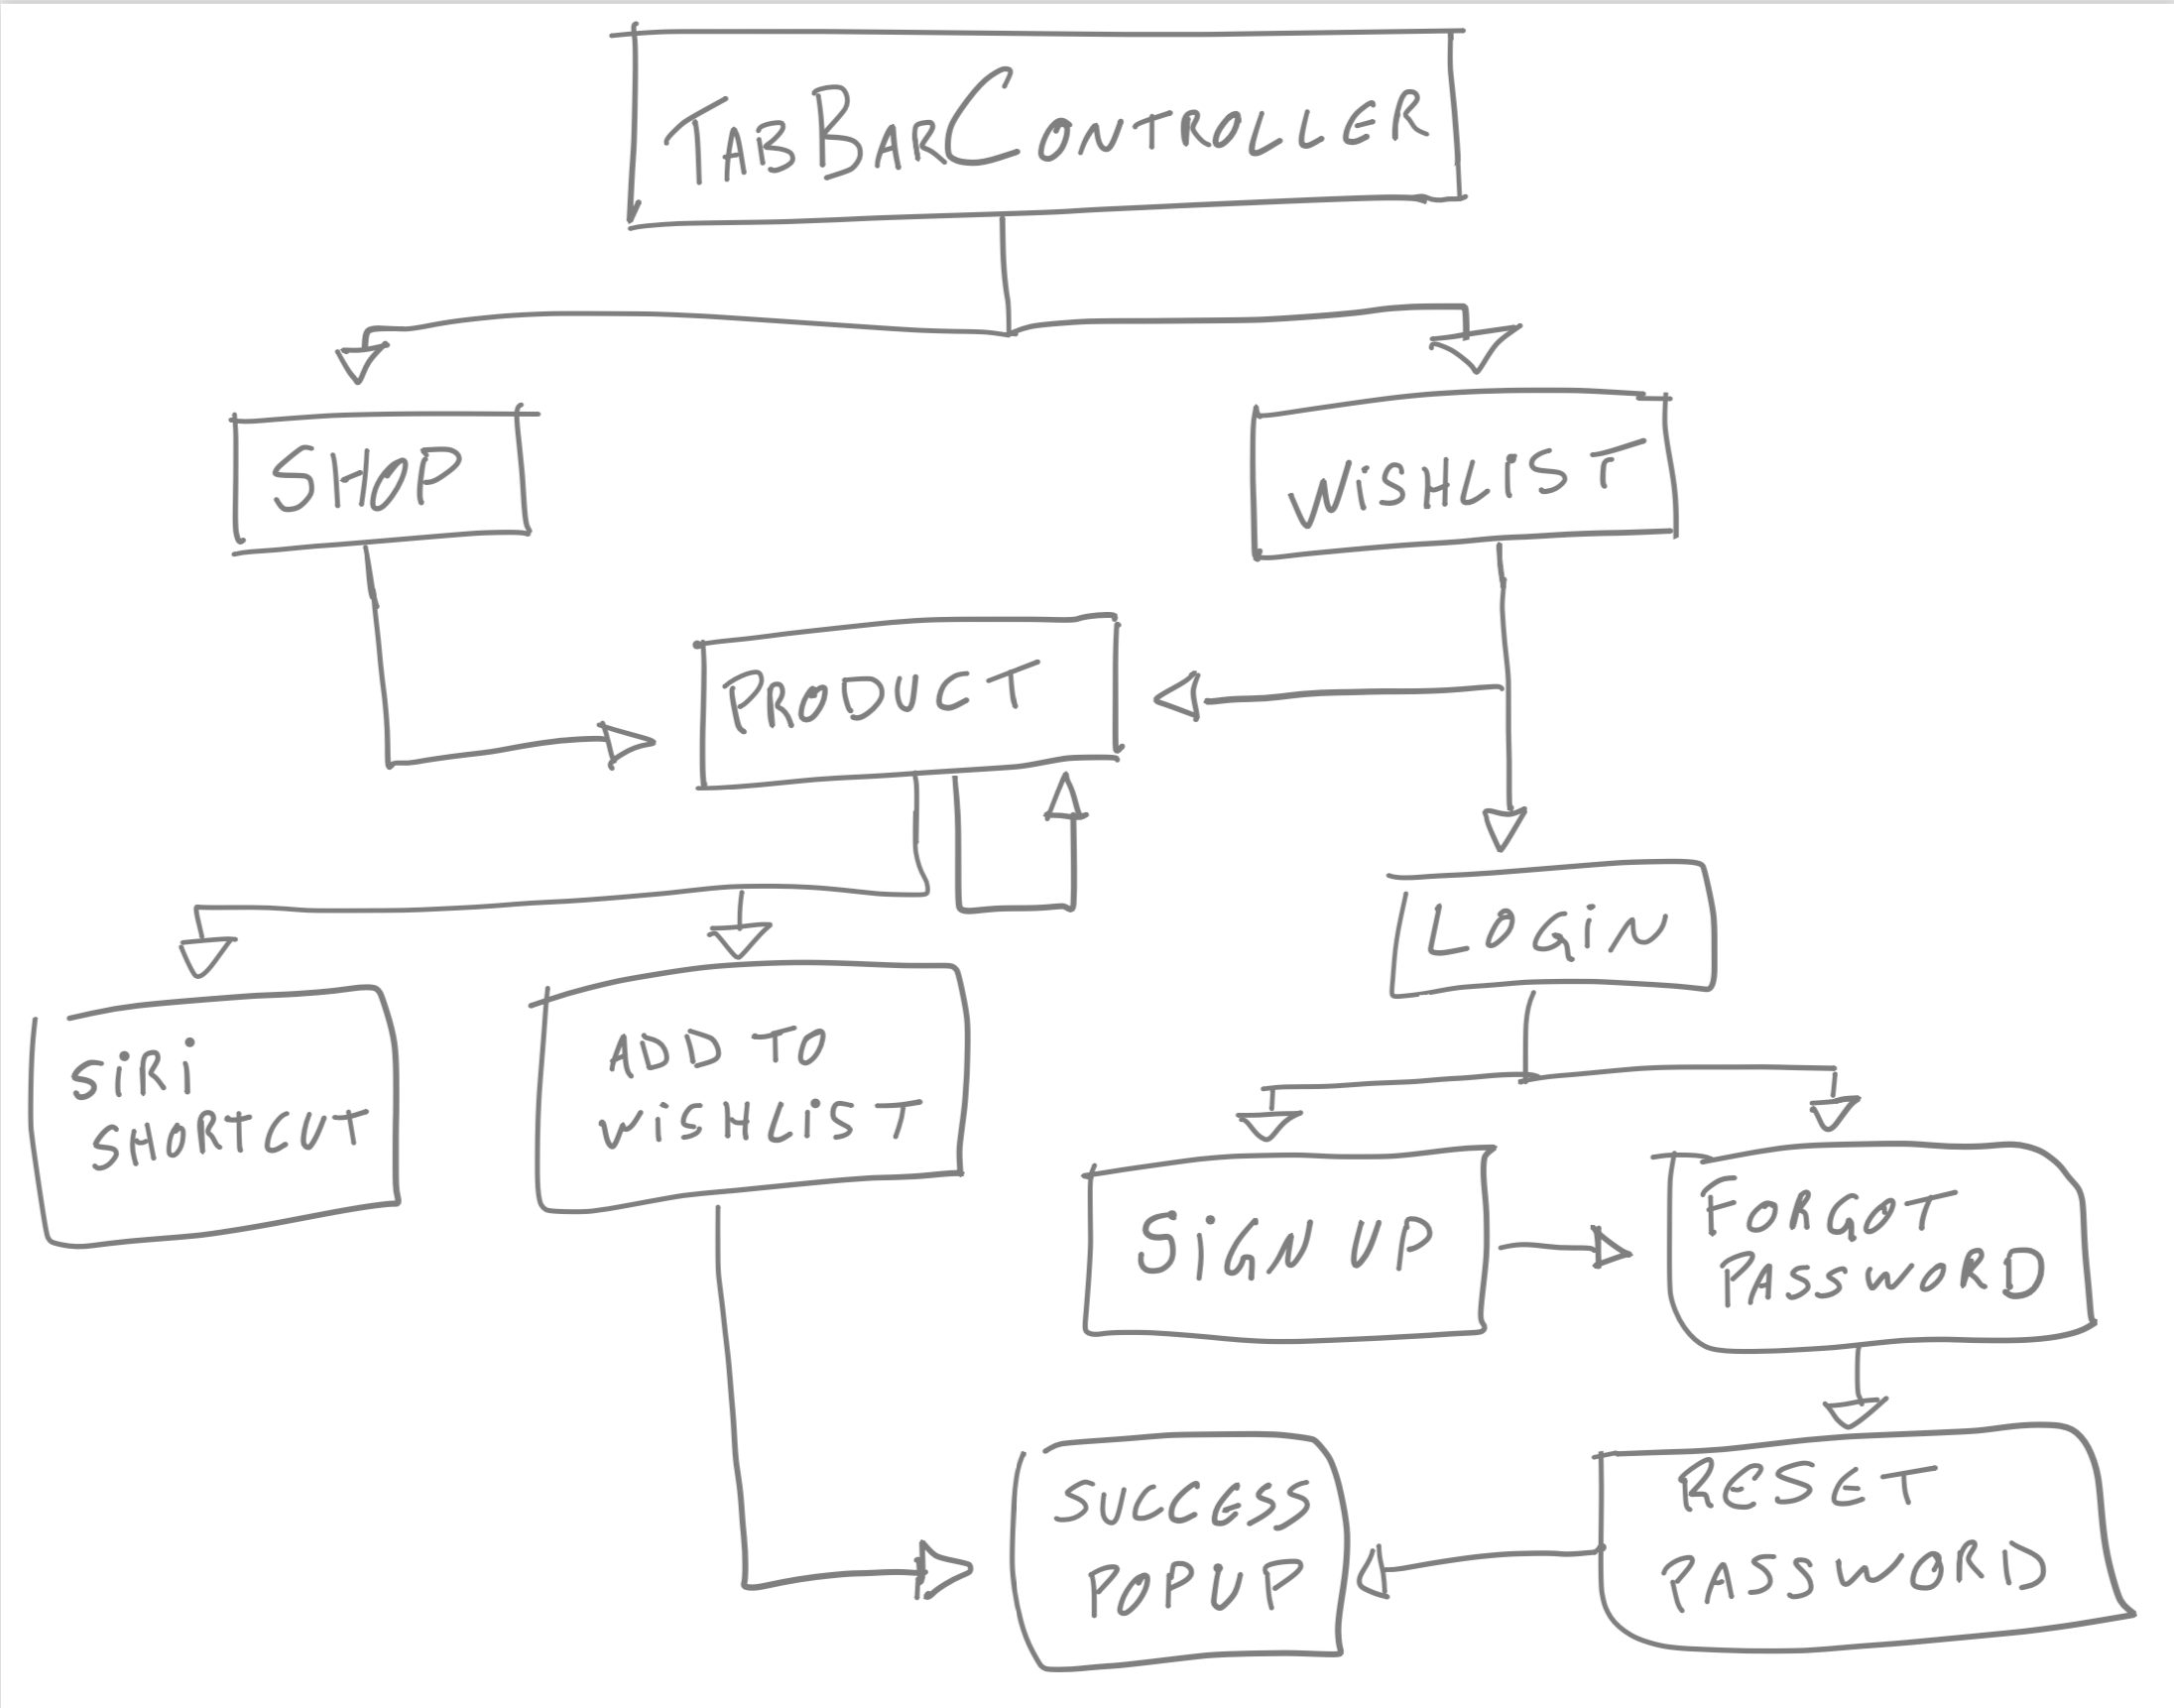 TABBARCONTROLLER
SHOP
WiSHLiST
PRODUCT
LOGiN
SiRi
SHORTCUT
ADD TO
WiSHLiST
SiGN UP
FORGOT
PASSWORD
SUCCESS
POPUP
RESET
PASSWORD